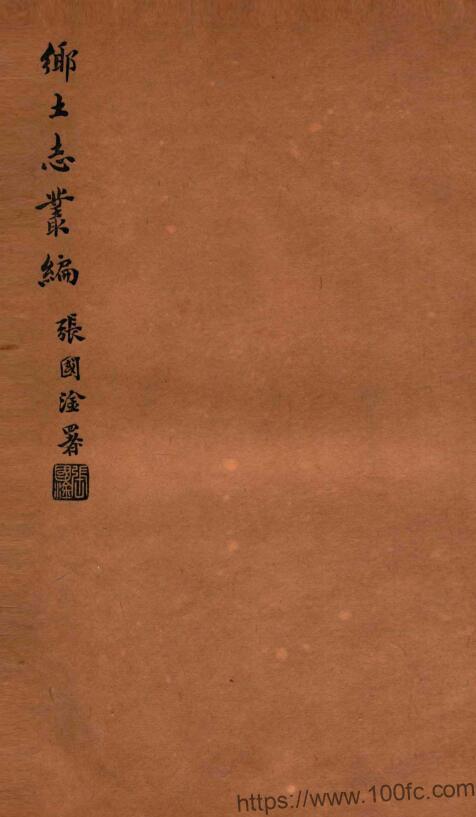 鄉土志叢編
張國淦署
張國淦
https://www.100fc.com